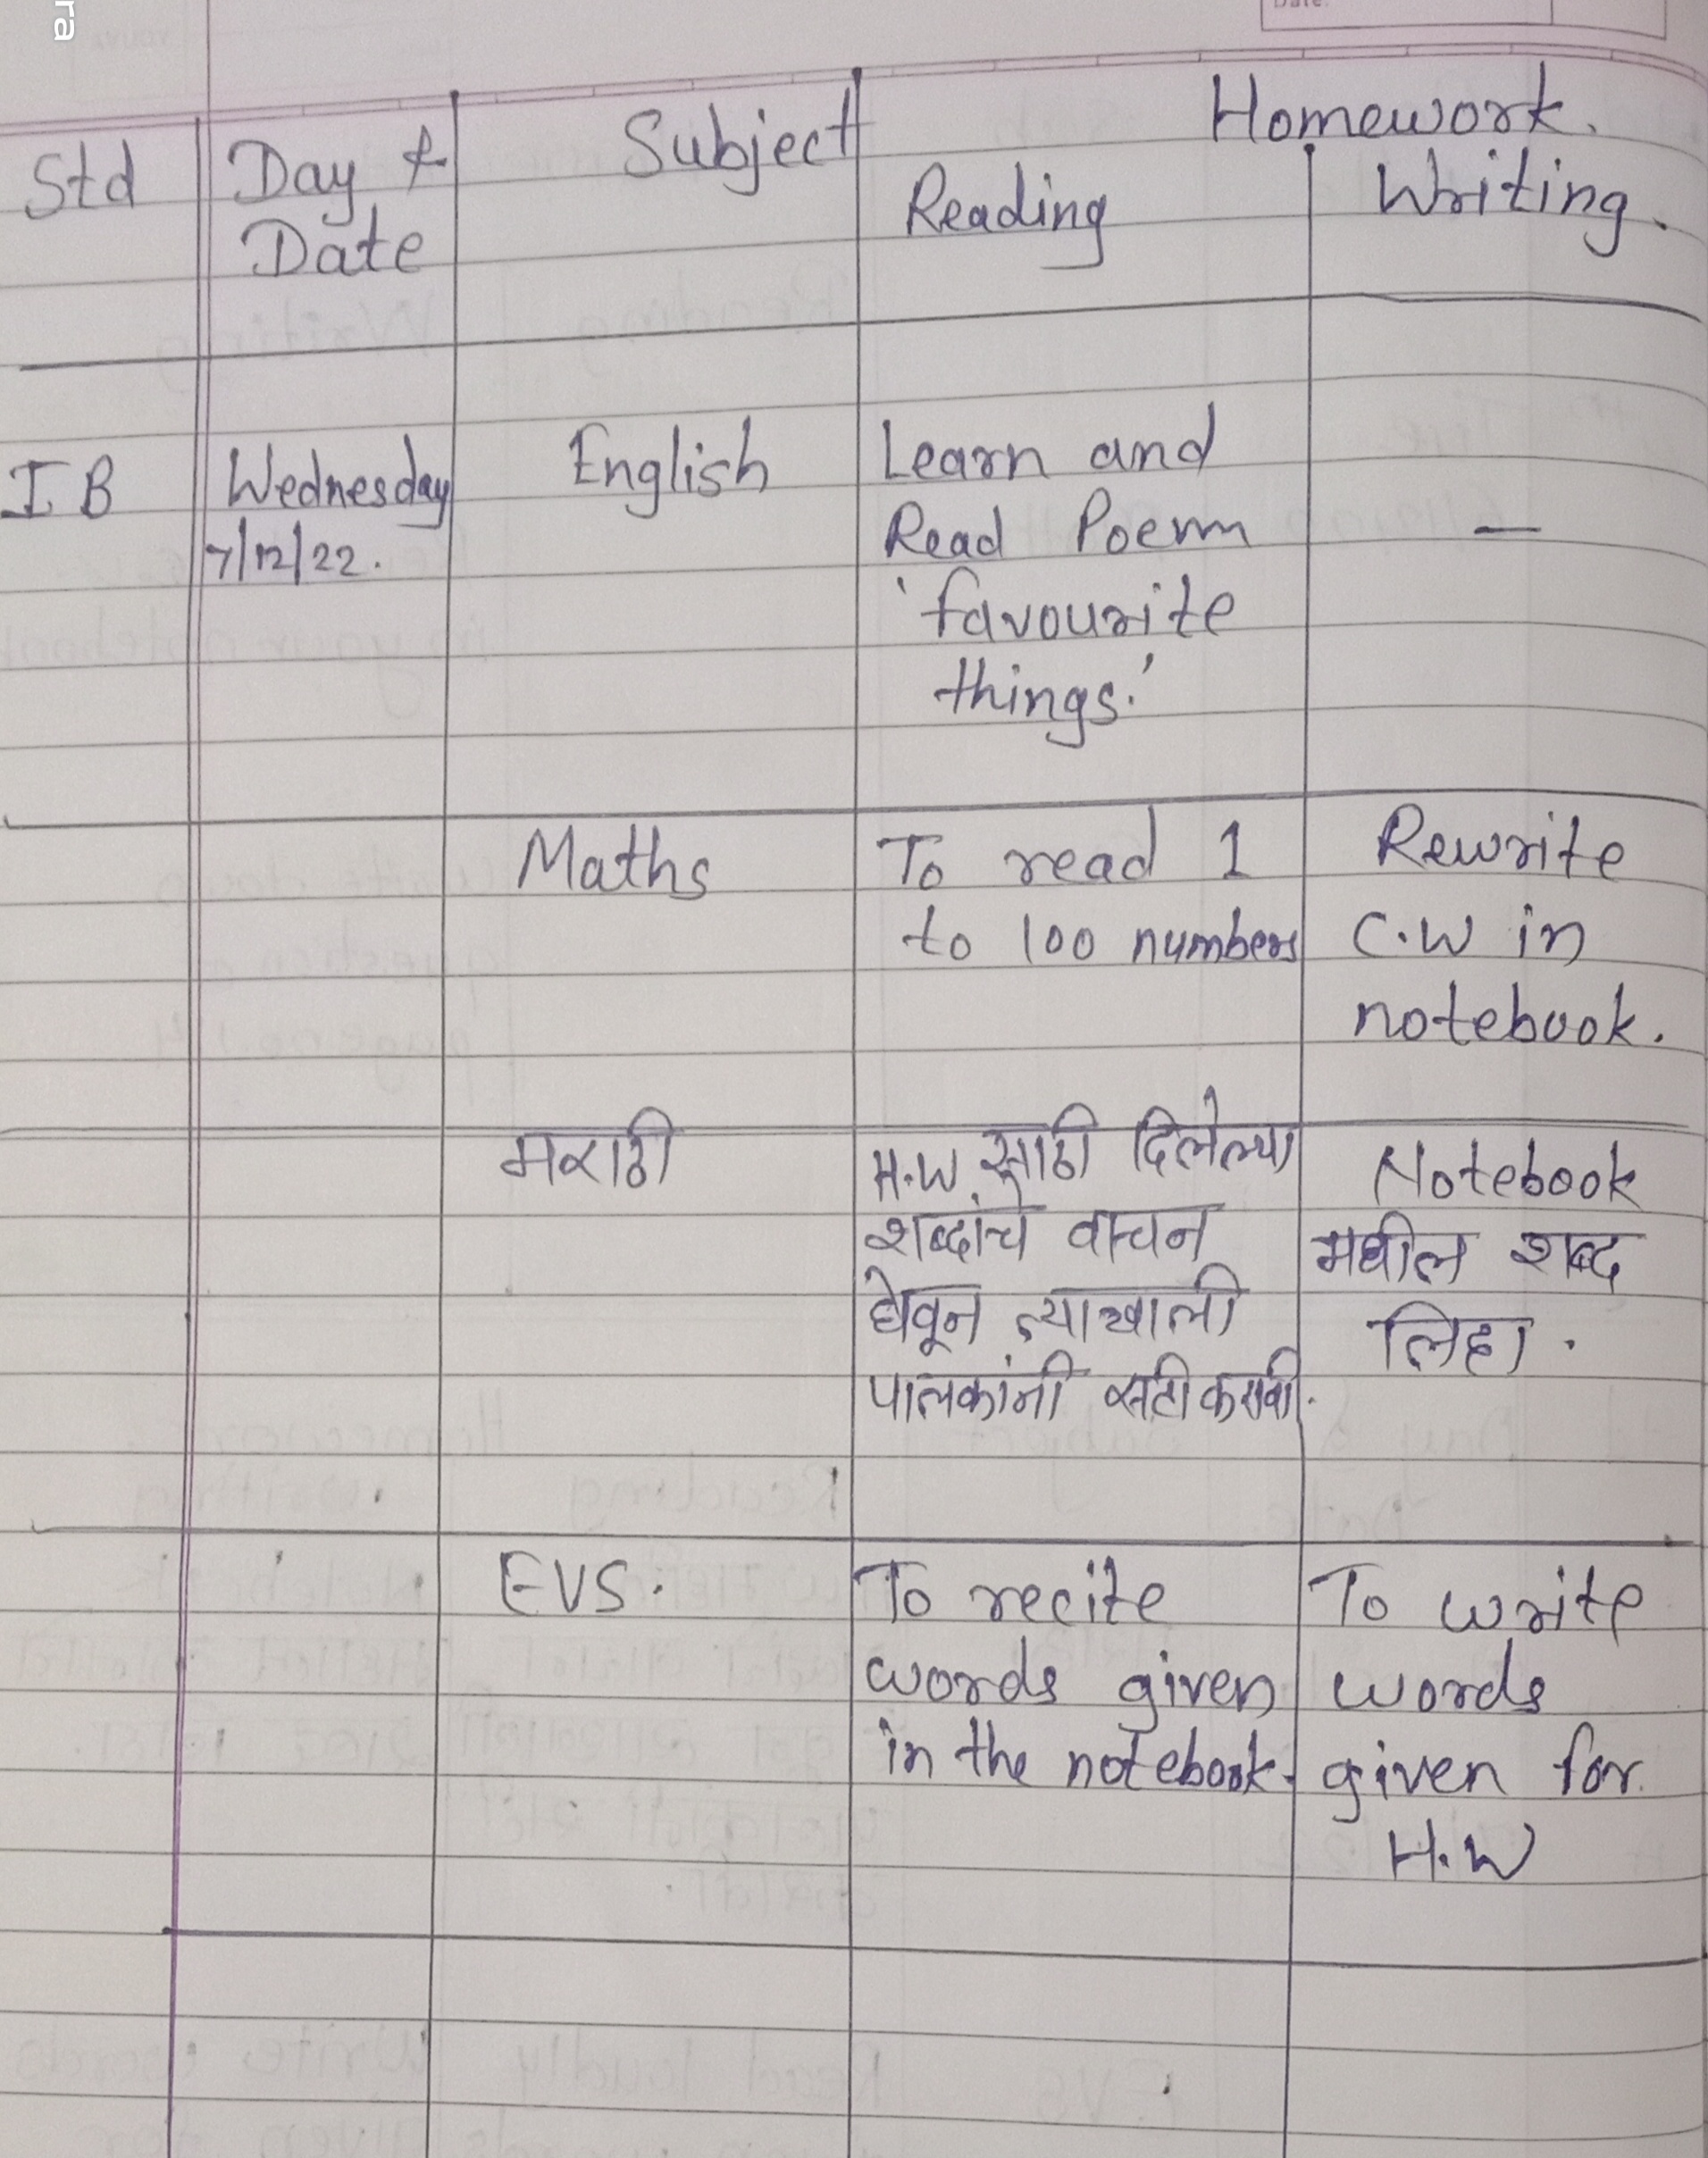 ra
Date:
Homework.
Std Day & Subject Reading Writing.
Date
I B Wednesday English Learn and
7/12/22. Read Poem —
'favourite
things.'
Maths To read 1 Rewrite
to 100 numbers C.W in
notebook.
मराठी H.W. साठी दिलेल्या Notebook
शब्दांचे वाचन मधील शब्द
घेवून त्याखाली लिहा.
पालकांनी सही करावी.
EVS. To recite To write
words given words
in the notebook. given for
H.W